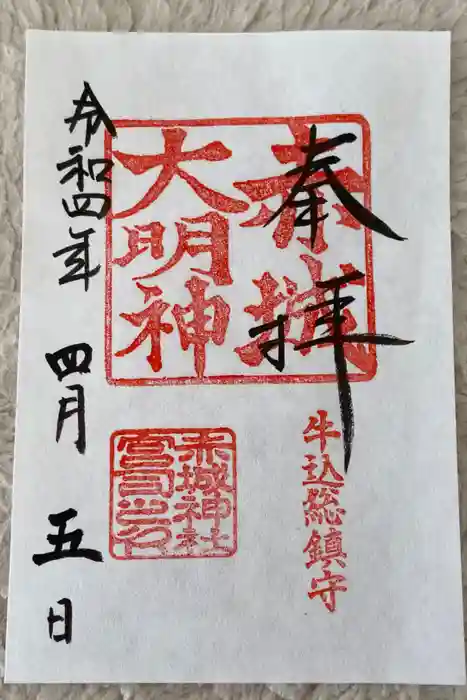 奉拝
赤城
大明神
牛込総鎮守
赤城神社
宮司之印
令和四年 四月 五日